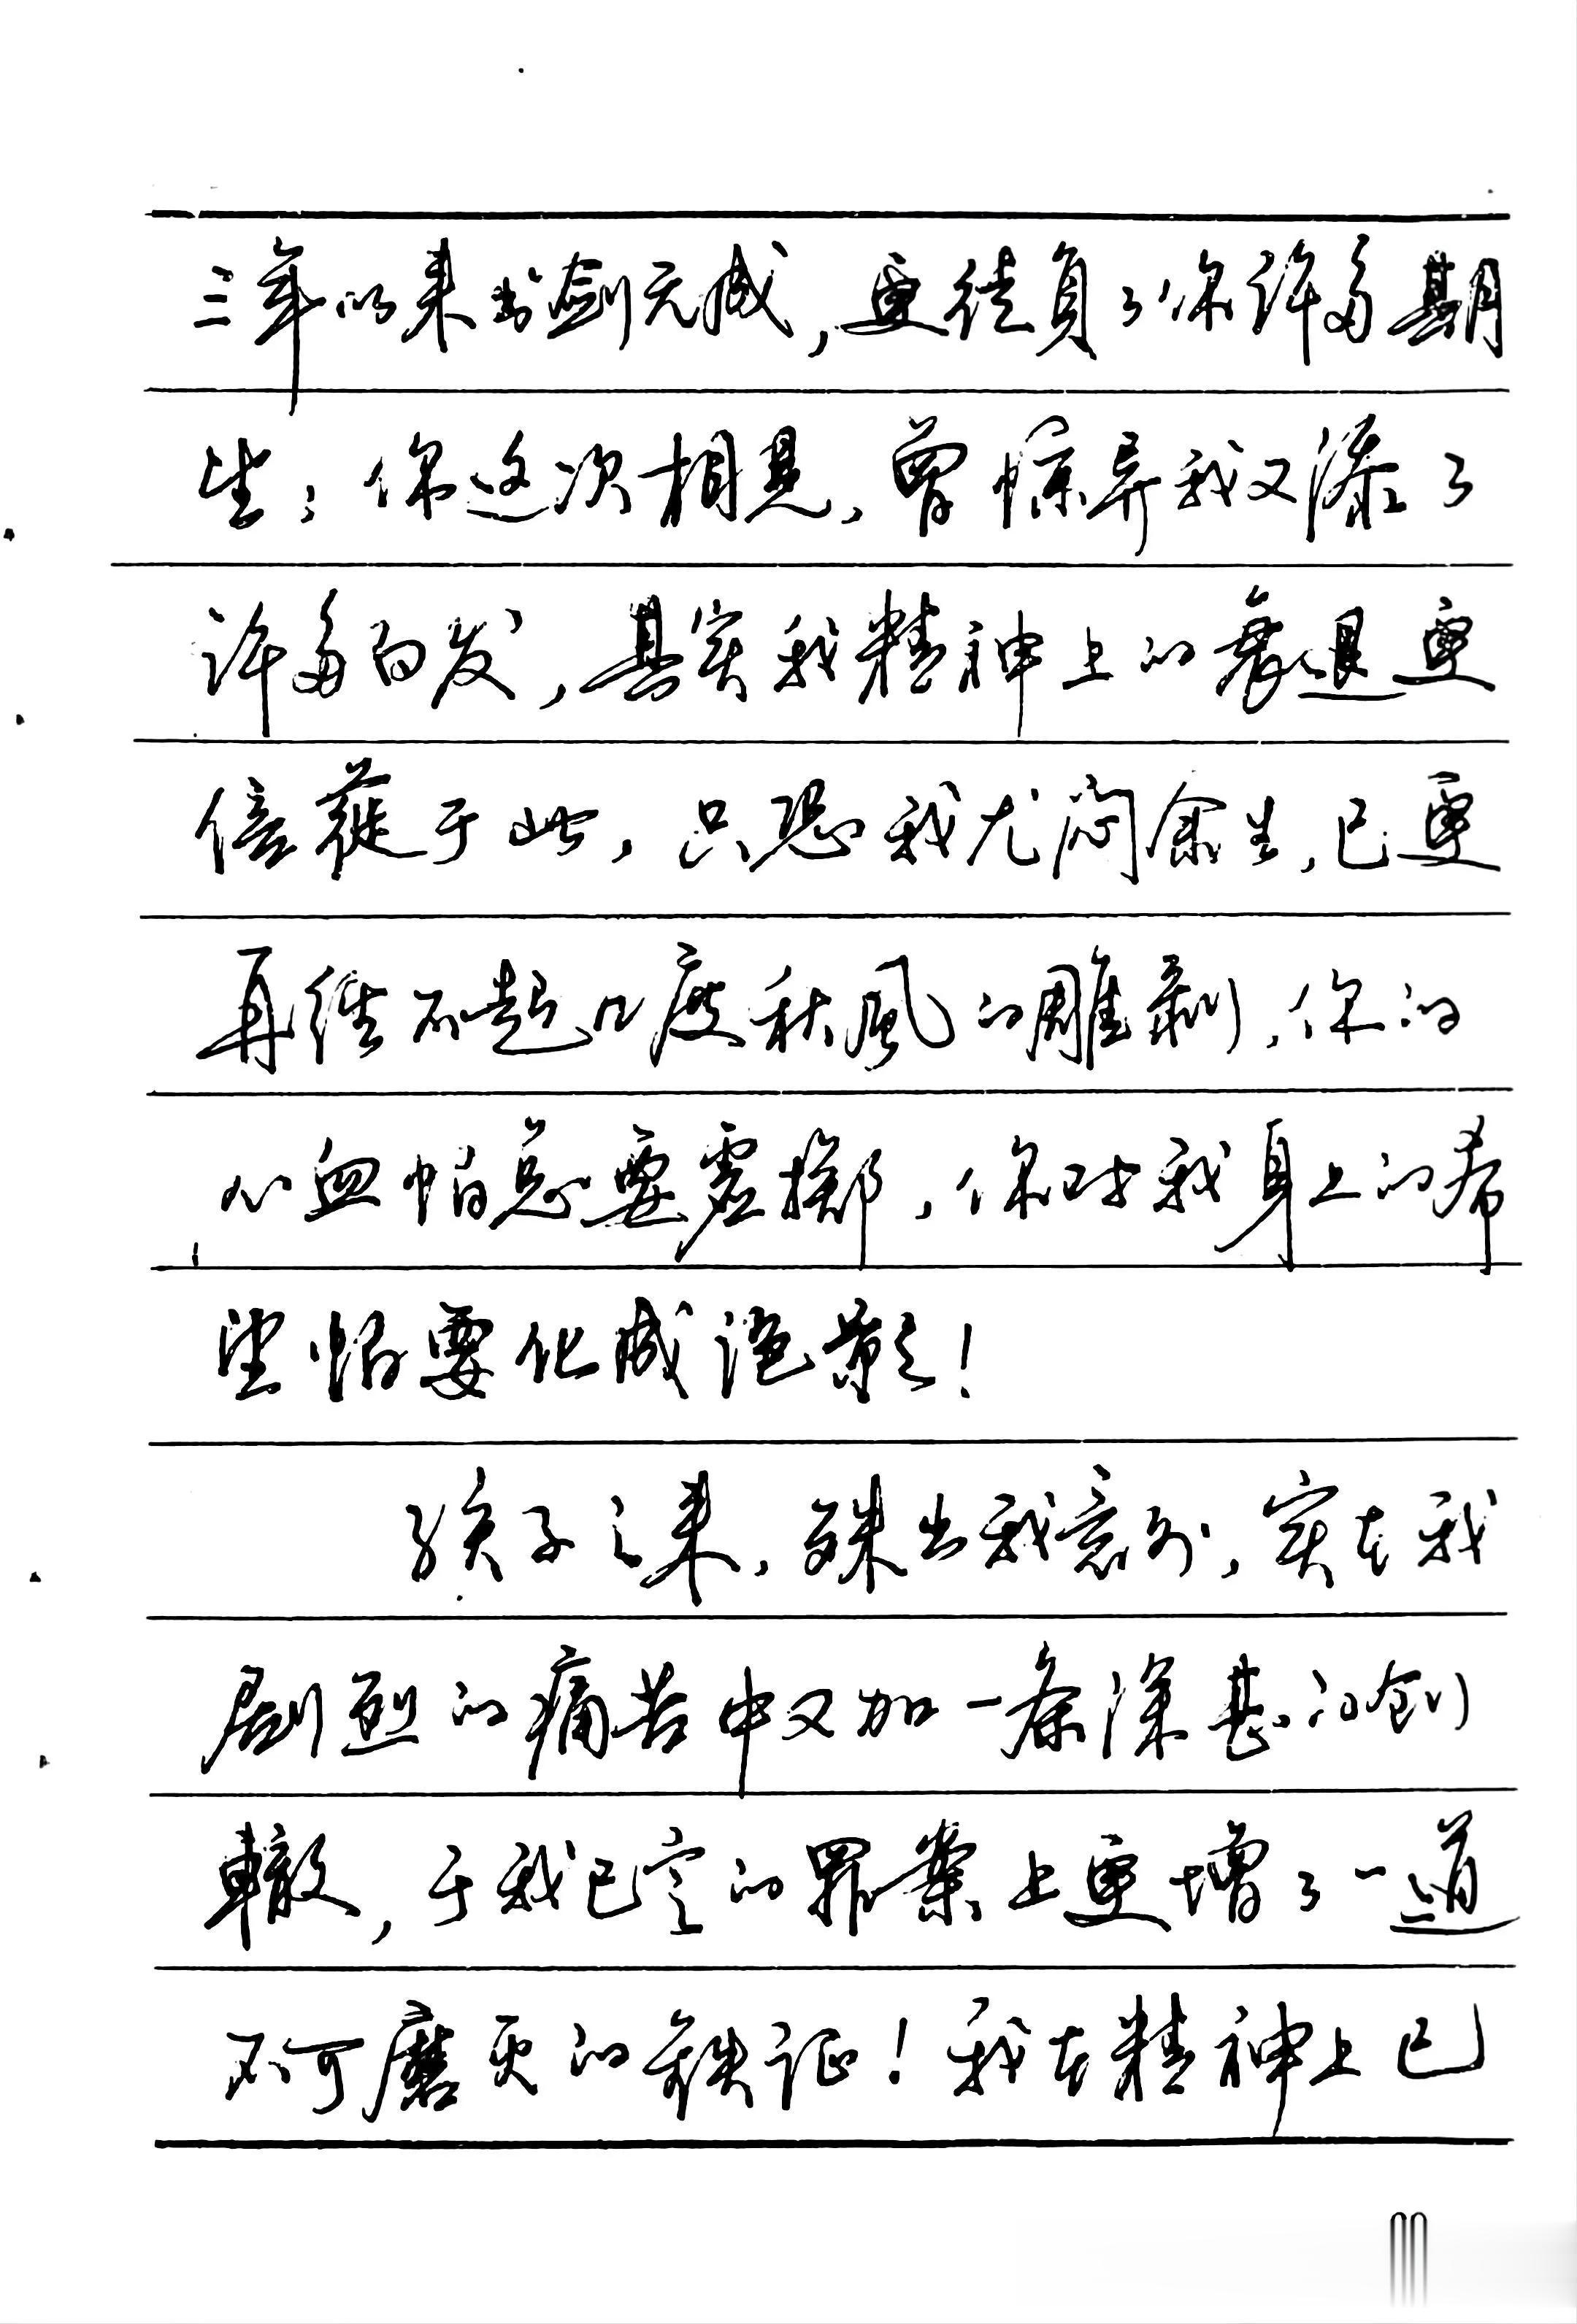 三年以来书剑无成，更徒负了你许多期
望；你这次相见，曾惊异我又添了
许多白发，其实我精神上的衰退更
倍蓰于此，只恐我尤闷余生，已更
再经不起几度秋風的雕剥，你的
心血怕总要虚掷，你对我身上的希
望怕要化成泡影！
孩子之来，殊出我意外，实在我
剧烈的痛苦中又加一条深甚的创
轍，于我已定的罪案上更增了一道
不可磨灭的铁证！我在精神上已